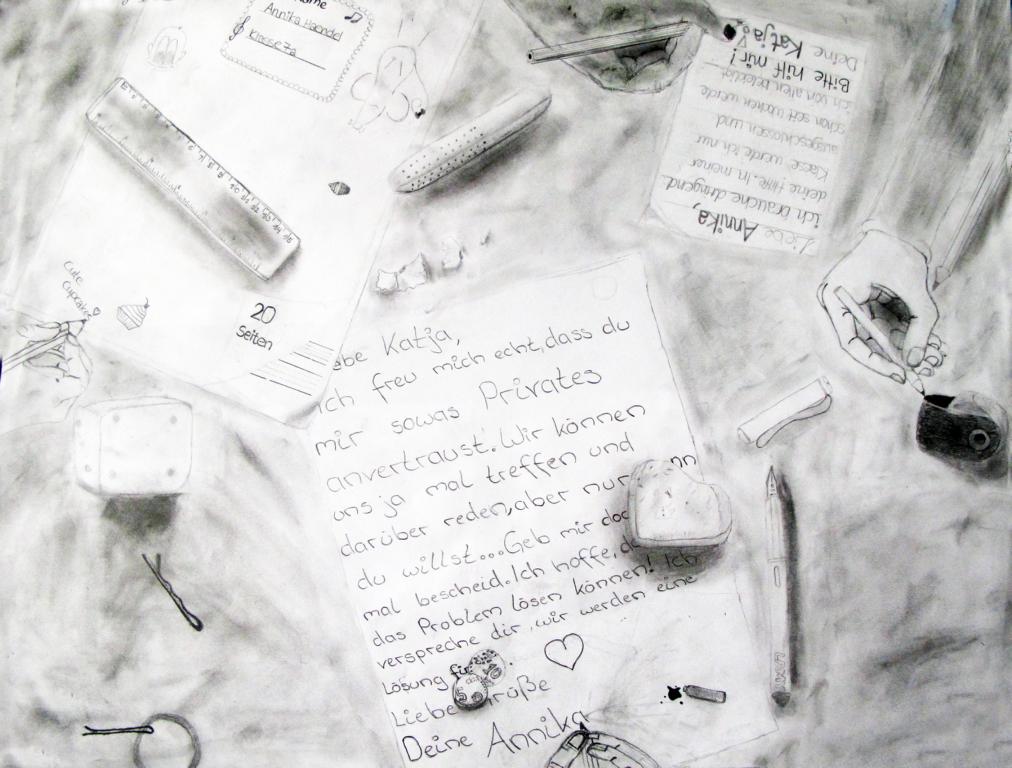 Annika Haendel
Klasse 7a
Liebe Annika,
ich brauche dringend
deine Hilfe. In meiner
Klasse werde ich nur
ausgeschlossen und
schon seit wochen werde
ich von allen beleidigt.
Bitte hilf mir!
Deine Katja
Cute
Cupcakes
20
Seiten
ebe Katja,
ich freu mich echt, dass du
mir sowas Privates
anvertraust. Wir können
uns ja mal treffen und
darüber reden, aber nur nn
du willst... Geb mir doc
mal bescheid. Ich hoffe, d
das Problem lösen können! Ich
verspreche dir, wir werden eine
Lösung für
Liebe rüße
Deine Annika